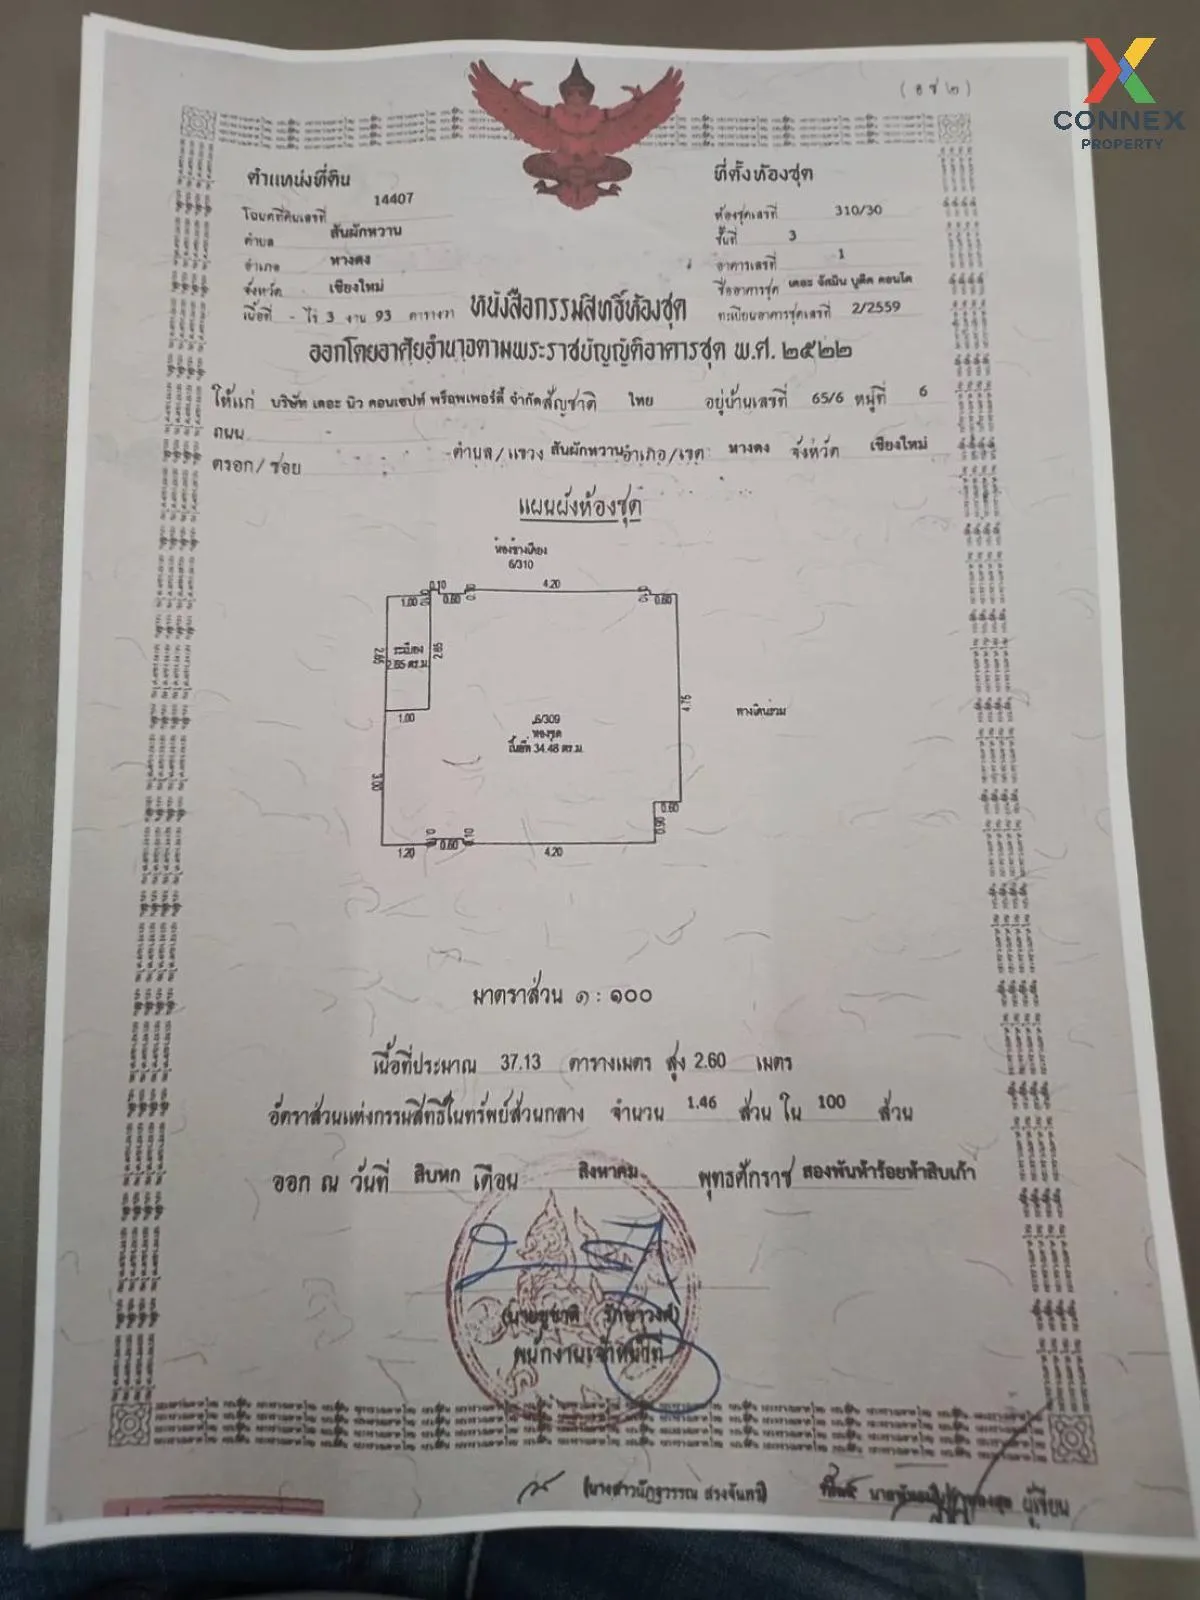 (อ ช ๒)
CONNEX
PROPERTY
ตำแหน่งที่ดิน
โฉนดที่ดินเลขที่ 14407
ตำบล สันผักหวาน
อำเภอ หางดง
จังหวัด เชียงใหม่
เนื้อที่ - ไร่ 3 งาน 93 ตารางวา
ที่ตั้งห้องชุด
ห้องชุดเลขที่ 310/30
ชั้นที่ 3
อาคารเลขที่ 1
ชื่ออาคารชุด เดอะ จัสมิน บูติค คอนโด
ทะเบียนอาคารชุดเลขที่ 2/2559
หนังสือกรรมสิทธิ์ห้องชุด
ออกโดยอาศัยอำนาจตามพระราชบัญญัติอาคารชุด พ.ศ. ๒๕๒๒
ให้แก่ บริษัท เดอะ นิว คอนเซปท์ พร็อพเพอร์ตี้ จำกัด สัญชาติ ไทย อยู่บ้านเลขที่ 65/6 หมู่ที่ 6
ถนน
ตรอก/ซอย - ตำบล/แขวง สันผักหวาน อำเภอ/เขต หางดง จังหวัด เชียงใหม่
แผนผังห้องชุด
ห้องข้างเคียง
6/310
0.10
4.20
1.00
0.60
0.60
2.65
ระเบียง
2.65 ตร.ม.
2.65
1.00
4.75
ทางเดินร่วม
6/309
ห้องชุด
เนื้อที่ 34.48 ตร.ม.
3.00
0.60
0.90
1.20
0.60
0.10
4.20
มาตราส่วน ๑ : ๑๐๐
เนื้อที่ประมาณ 37.13 ตารางเมตร สูง 2.60 เมตร
อัตราส่วนแห่งกรรมสิทธิ์ในทรัพย์ส่วนกลาง จำนวน 1.46 ส่วน ใน 100 ส่วน
ออก ณ วันที่ สิบหก เดือน สิงหาคม พุทธศักราช สองพันห้าร้อยห้าสิบเก้า
(นายชูชาติ รักษาวงศ์)
พนักงานเจ้าหน้าที่
ผู้เขียน